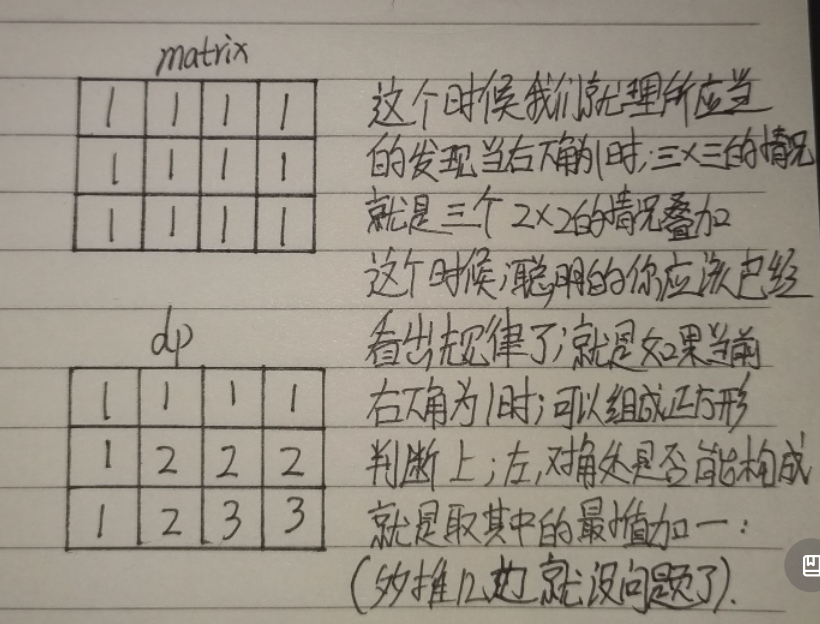 matrix
1 1 1 1
1 1 1 1
1 1 1 1
dp
1 1 1 1
1 2 2 2
1 2 3 3
这个时候我们就理所应当
的发现当右下角为1时;三×三的情况
就是三个2×2的情况叠加
这个时候;聪明的你应该已经
看出规律了;就是如果当前
右下角为1时;可以组成正方形
判断上;左,对角处是否能构成
就是取其中的最小值加一:
(多推几边就没问题了).